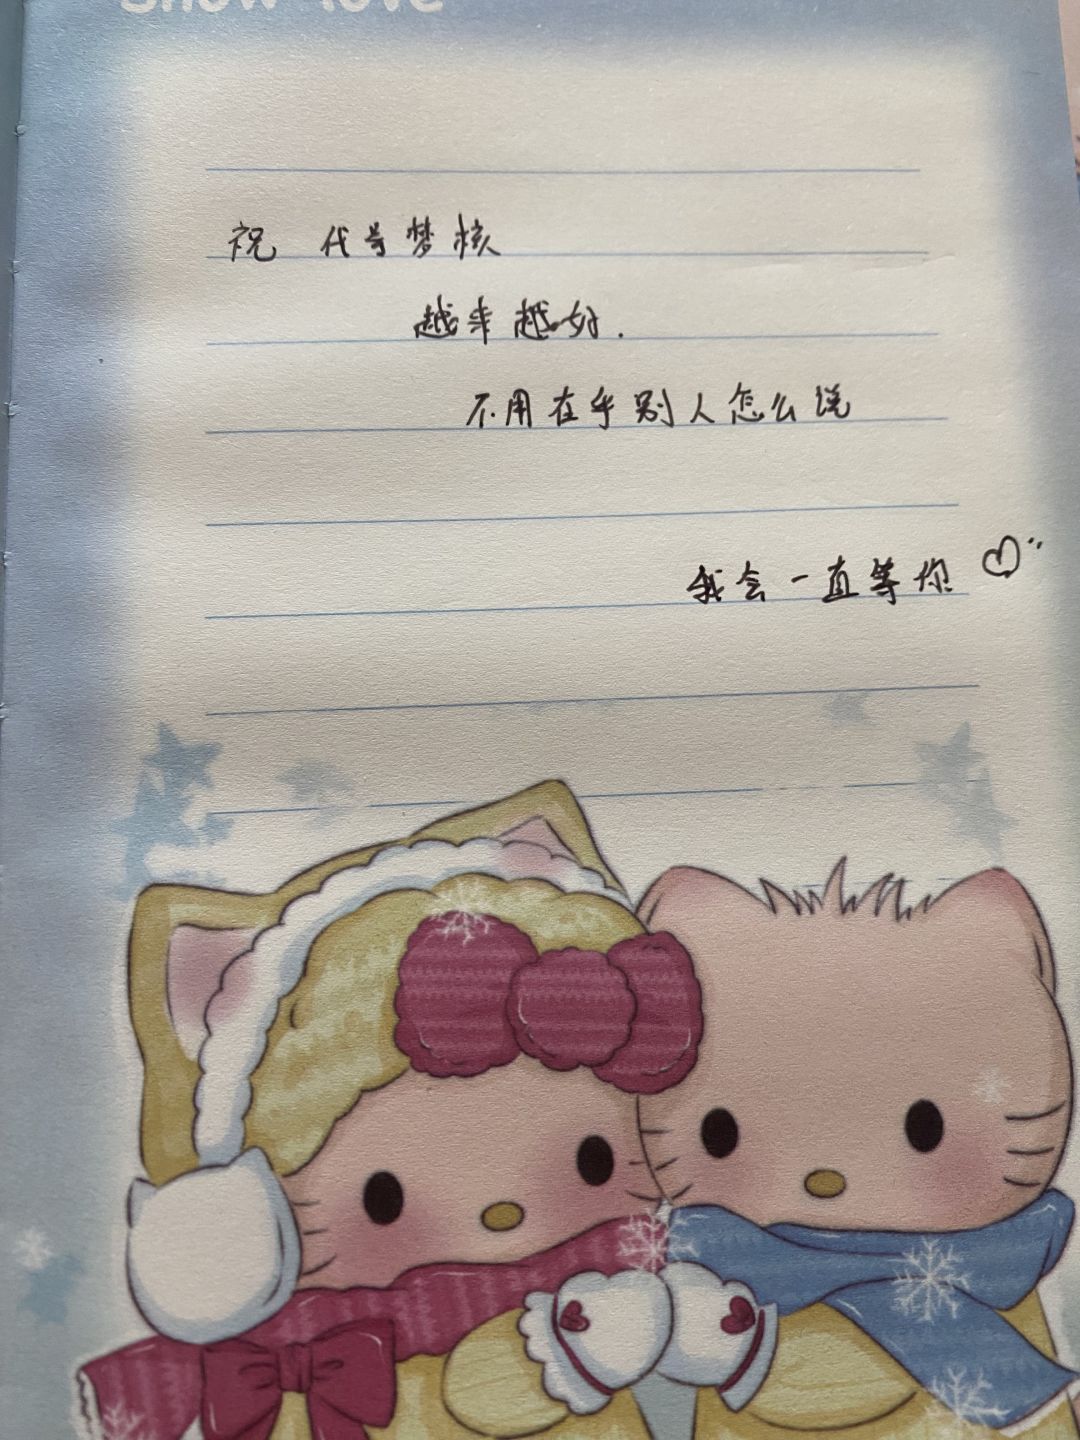 Snow love
祝 代号梦核
越来越好.
不用在乎别人怎么说
我会一直等你